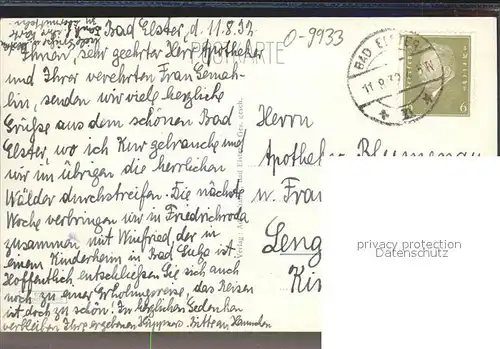 Bad Elster, d. 11.8.32
O-9933
Ihnen, sehr geehrter Herr Apotheker
POSTKARTE
und Ihrer verehrten Frau Gemah-
lin, senden wir viele herzliche
Grüße aus dem schönen Bad
Elster, wo ich Kur gebrauche und
wir im übrigen die herrlichen
Wälder durchstreifen. Die nächste
Woche verbringen wir in Friedrichroda
zusammen mit Winfried der in
einem Kinderheim in Bad Sulza ist
Hoffentlich entschließen Sie sich auch
noch zu einer Erholungsreise, das Reisen
ist doch zu schön! In herzlichem Gedenken
verbleiben Ihre ergebenen
BAD ELSTER
11.8.32
6
Herrn
Apotheker Blumenau
u. Frau
Leng
Kis
privacy protection
Datenschutz